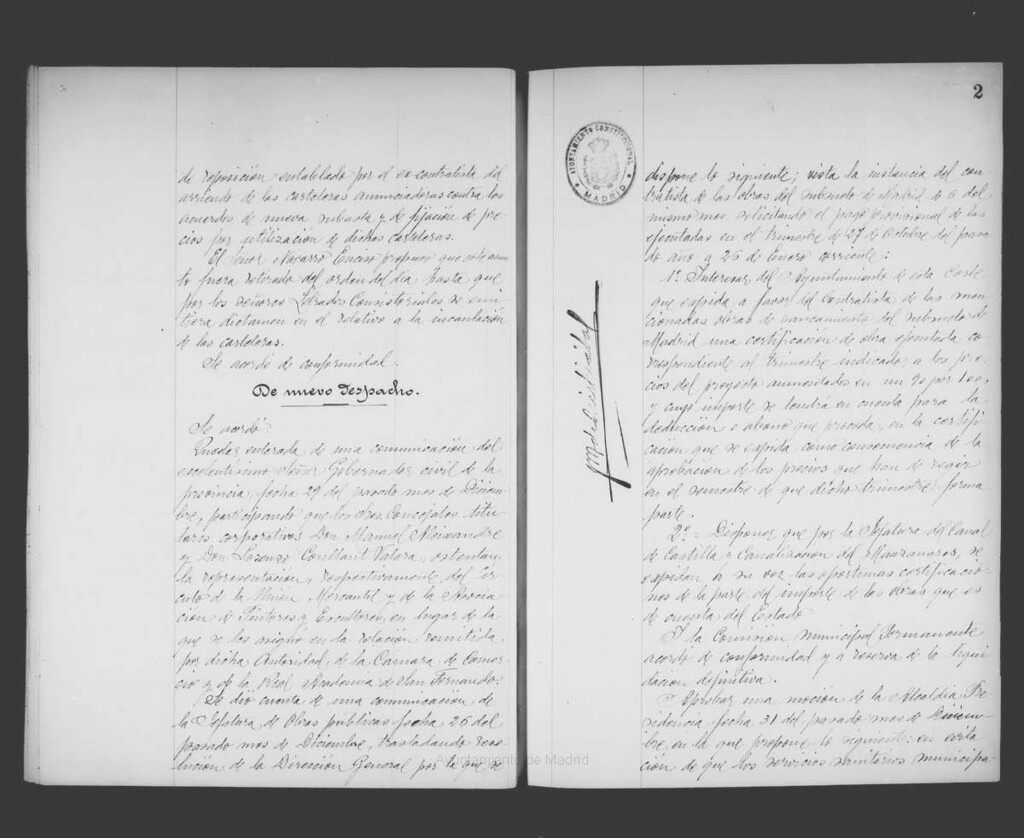 de reposición entablado por el ex-contratista del
arriendo de las carteleras anunciadoras contra los
acuerdos de nueva subasta y de fijación de pre-
cios por utilización de dichas carteleras.
El Señor Navarro Enciso propuso que este asun-
to fuera retirado del orden del día hasta que
por los señores Letrados Consistoriales se emi-
tiera dictamen en el relativo a la incautación
de las carteleras.
Se acordó de conformidad.
De nuevo despacho.
Se acordó:
Quedar enterada de una comunicación del
excelentísimo Señor Gobernador civil de la
provincia, fecha 29 del pasado mes de Diciem-
bre, participando que los Sres. Concejales titu-
lares corporativos Don Manuel Aleixandre
y Don Lorenzo Coullaut Valera, ostentan
la representación, respectivamente, del Cír-
culo de la Unión Mercantil y de la Asocia-
ción de Pintores y Escultores, en lugar de la
que se les asignó en la relación remitida
por dicha Autoridad, de la Cámara de Comer-
cio y de la Real Academia de San Fernando.
Se dió cuenta de una comunicación de
la Jefatura de Obras públicas fecha 26 del
pasado mes de Diciembre, trasladando reso-
lución de la Dirección General por la que se
AYUNTAMIENTO CONSTITUCIONAL
MADRID
2
dispone lo siguiente; vista la instancia del con-
tratista de las obras del subsuelo de Madrid de 6 del
mismo mes solicitando el pago provisional de las
ejecutadas en el trimestre de 27 de Octubre del pasa-
do año a 26 de Enero corriente:
1º Interesar del Ayuntamiento de esta Corte
que expida a favor del Contratista de las men-
cionadas obras de saneamiento del subsuelo de
Madrid una certificación de obra ejecutada co-
rrespondiente al trimestre indicado, a los pre-
cios del proyecto aumentados en un 90 por 100,
y cuyo importe se tendrá en cuenta para la
deducción o abono que proceda, en la certifi-
cación que se expida como consecuencia de la
aprobación de los precios que han de regir
en el semestre de que dicho trimestre forma
parte.
2º Disponer que por la Jefatura del Canal
de Castilla y Canalización del Manzanares, se
expidan a su vez las oportunas certificacio-
nes de la parte del importe de las obras que es
de cuenta del Estado
Y la Comisión municipal Permanente
acordó de conformidad y a reserva de la liqui-
dación definitiva.
Aprobar una moción de la Alcaldía Pre-
sidencia fecha 31 del pasado mes de Diciem-
bre, en la que propone lo siguiente: en evita-
ción de que los servicios sanitarios municipa-
Ayuntamiento de Madrid